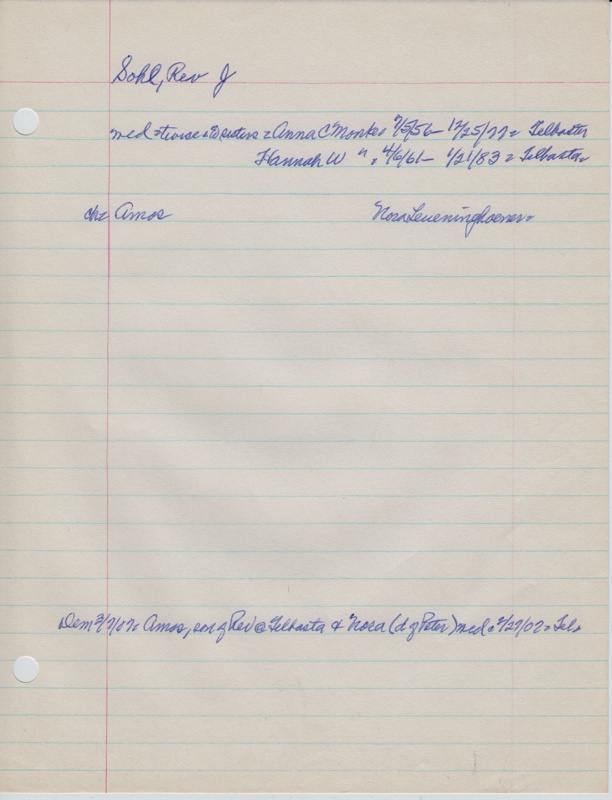 Sohl, Rev J
med = twice = Anna C Monke 7/5/56 - 12/25/77 = Telbasta
Hannah W " = 4/6/61 - 1/21/83 = Telbasta
ch = Amos Nora Leueninghoener
Dem 3/7/07 = Amos, son of Rev @ Telbasta & Nora (d of Peter) med = 2/27/07 = Tel